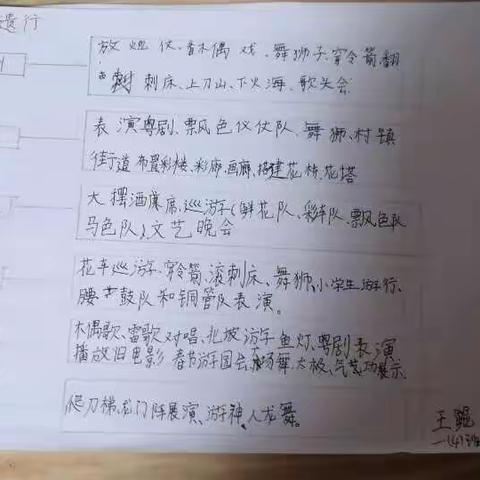 遗行
放炮伏、木偶戏、舞狮子、穿令箭、翻
刺床、上刀山、下火海、歌头会
表演粤剧、飘风色仪仗队、舞狮、村镇
街道布置彩楼、彩廊、画廊、搭建花桥、花塔
大摆酒席、巡游(鲜花队、彩车队、飘色队
马色队)、文艺晚会
花车巡游、穿令箭、滚刺床、舞狮、小学生游行、
腰鼓队和铜管队表演。
木偶歌、雷歌对唱、北坡游鱼灯、粤剧表演
播放旧电影 春节游园会、广场舞、太极、气功展示、
爬刀梯、龙门阵展演、游神、人龙舞。
王
一(4)班